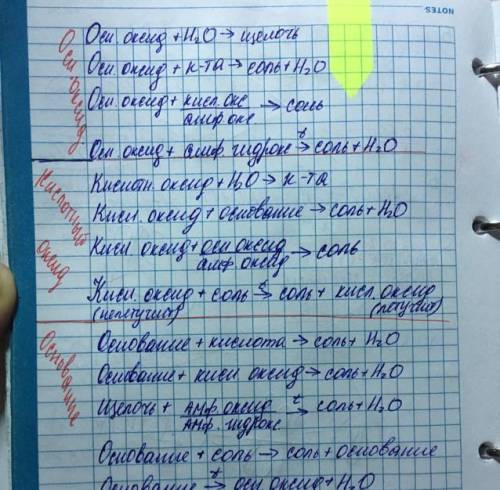 NOTES
Осн. оксид
Осн. оксид + H₂O → щелочь
Осн. оксид + к-та → соль + H₂O
Осн. оксид + кисл. окс / амф. окс → соль
Осн. оксид + амф. гидрокс t→ соль + H₂O
Кислотный оксид
Кислотн. оксид + H₂O → к-та
Кисл. оксид + основание → соль + H₂O
Кисл. оксид + осн. оксид / амф. оксид → соль
Кисл. оксид + соль t→ соль + кисл. оксид
(нелетучий) (летучий)
Основание
Основание + кислота → соль + H₂O
Основание + кисл оксид → соль + H₂O
Щелочь + амф. оксид / амф. гидрокс t→ соль + H₂O
Основание + соль → соль + основание
Основание t→ осн оксид + H₂O